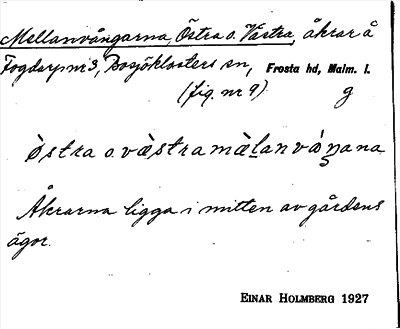 Mellanvångarna, Östra o. Västra, åkrar å
Fogdarp nr 3, Bosjöklosters sn, Frosta hd, Malm. l.
(fig. nr 9) g
òstra o. vàstra màlanvåŋana
Åkrarna ligga i mitten av gårdens
ägor.
EINAR HOLMBERG 1927